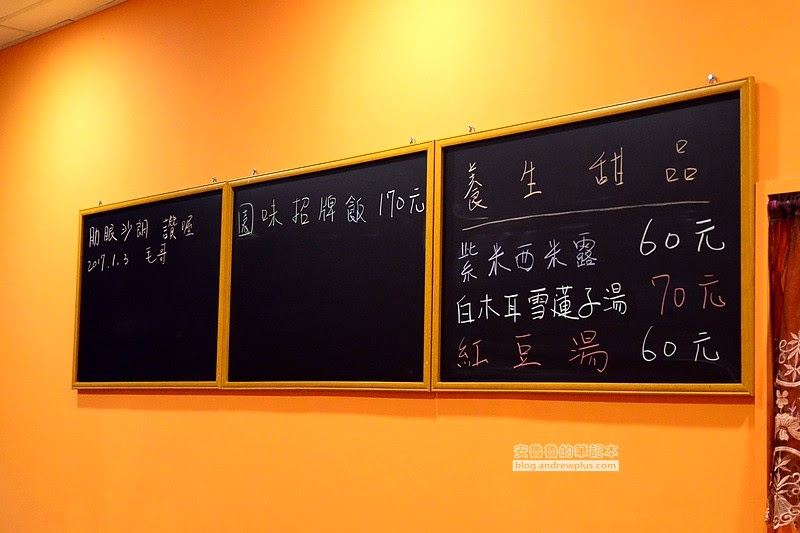 肋眼沙朗 讚喔
2017.1.3 毛哥
園味招牌飯 170元
養生甜品
紫米西米露 60元
白木耳雪蓮子湯 70元
紅豆湯 60元
安魯魯的筆記本
blog.andrewplus.com